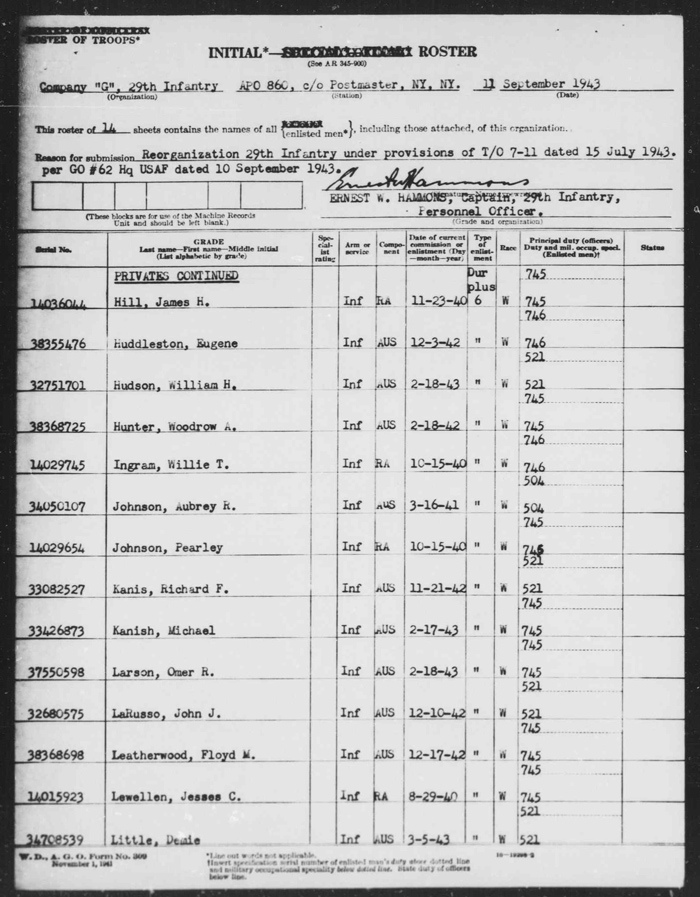 ROSTER OF TROOPS*
INITIAL*— ROSTER
(See AR 345-900)
Company "G", 29th Infantry APO 860, c/o Postmaster, NY, NY. 11 September 1943
(Organization) (Station) (Date)
This roster of 14 sheets contains the names of all {enlisted men*}, including those attached, of this organization.
Reason for submission Reorganization 29th Infantry under provisions of T/O 7-11 dated 15 July 1943.
per GO #62 Hq USAF dated 10 September 1943.
Ernest W Hammons
ERNEST W. HAMMONS, Captain, 29th Infantry,
Personnel Officer.
(Grade and organization)
(These blocks are for use of the Machine Records
Unit and should be left blank.)
Serial No. GRADE Last name—First name—Middle initial (List alphabetic by grade) Spe-cial-ist rating Arm or service Compo-nent Date of current commission or enlistment (Day—month—year) Type of enlist-ment Race Principal duty (officers) Duty and mil. occup. speci. (Enlisted men)† Status
PRIVATES CONTINUED Dur plus 745
14036044 Hill, James H. Inf RA 11-23-40 6 W 745
746
38355476 Huddleston, Eugene Inf AUS 12-3-42 " W 746
521
32751701 Hudson, William H. Inf AUS 2-18-43 " W 521
745
38368725 Hunter, Woodrow A. Inf AUS 2-18-42 " W 745
746
14029745 Ingram, Willie T. Inf RA 10-15-40 " W 746
504
34050107 Johnson, Aubrey R. Inf AUS 3-16-41 " W 504
745
14029654 Johnson, Pearley Inf RA 10-15-40 " W
521
33082527 Kanis, Richard F. Inf AUS 11-21-42 " W 521
745
33426873 Kanish, Michael Inf AUS 2-17-43 " W 745
745
37550598 Larson, Omer R. Inf AUS 2-18-43 " W 745
521
32680575 LaRusso, John J. Inf AUS 12-10-42 " W 521
745
38368698 Leatherwood, Floyd M. Inf AUS 12-17-42 " W 745
745
14015923 Lewellen, Jesses C. Inf RA 8-29-40 " W 745
521
34708539 Little, Demie Inf AUS 3-5-43 " W 521
W. D., A. G. O. Form No. 309
November 1, 1941
*Line out words not applicable.
†Insert specification serial number of enlisted man's duty above dotted line
and military occupational speciality below dotted line. State duty of officers
below line.